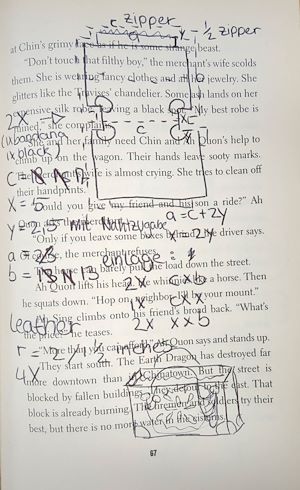 c zipper
a
y - 1/2 zipper
at Chin's grimy face as if he is some strange beast.
"Don't touch that filthy boy," the merchant's wife scolds
them. She is wearing fancy clothes and all her jewelry. She
glitters like the Travises' chandelier. Some ash lands on her
expensive silk robe, leaving a black spot. "My best robe is
ruined," she complains.
2x
1x bandana
1x black
b
x
c
She and her family need Chin and Ah Quon's help to
climb up on the wagon. Their hands leave sooty marks.
The merchant's wife is almost crying. She tries to clean off
their handprints.
c =
"Could you give my friend and his son a ride?" Ah
x = 5
a = c + 2y
y = 2,5 mit Nahtzugabe
x = 2y
"Only if you leave some boxes behind," the driver says.
a =
the merchant refuses.
b = 13
einlage:
barely pull the load down the street.
2x c x b
Ah Quon lifts his head like a horse. Then
he squats down. "Hop on, neighbor. I'll be your mount."
1x c x x
Ah Sing climbs onto his friend's broad back. "What's
2x x x b
the price?" he teases.
leather
"More than you can afford," Ah Quon says and stands up.
r = 2 - 1 1/2 inches
They start south. The Earth Dragon has destroyed far
4x
more downtown than in Chinatown. But the street is
blocked by fallen buildings. They detour to the east. That
block is already burning. The firemen and soldiers try their
best, but there is no more water in the cisterns.
67